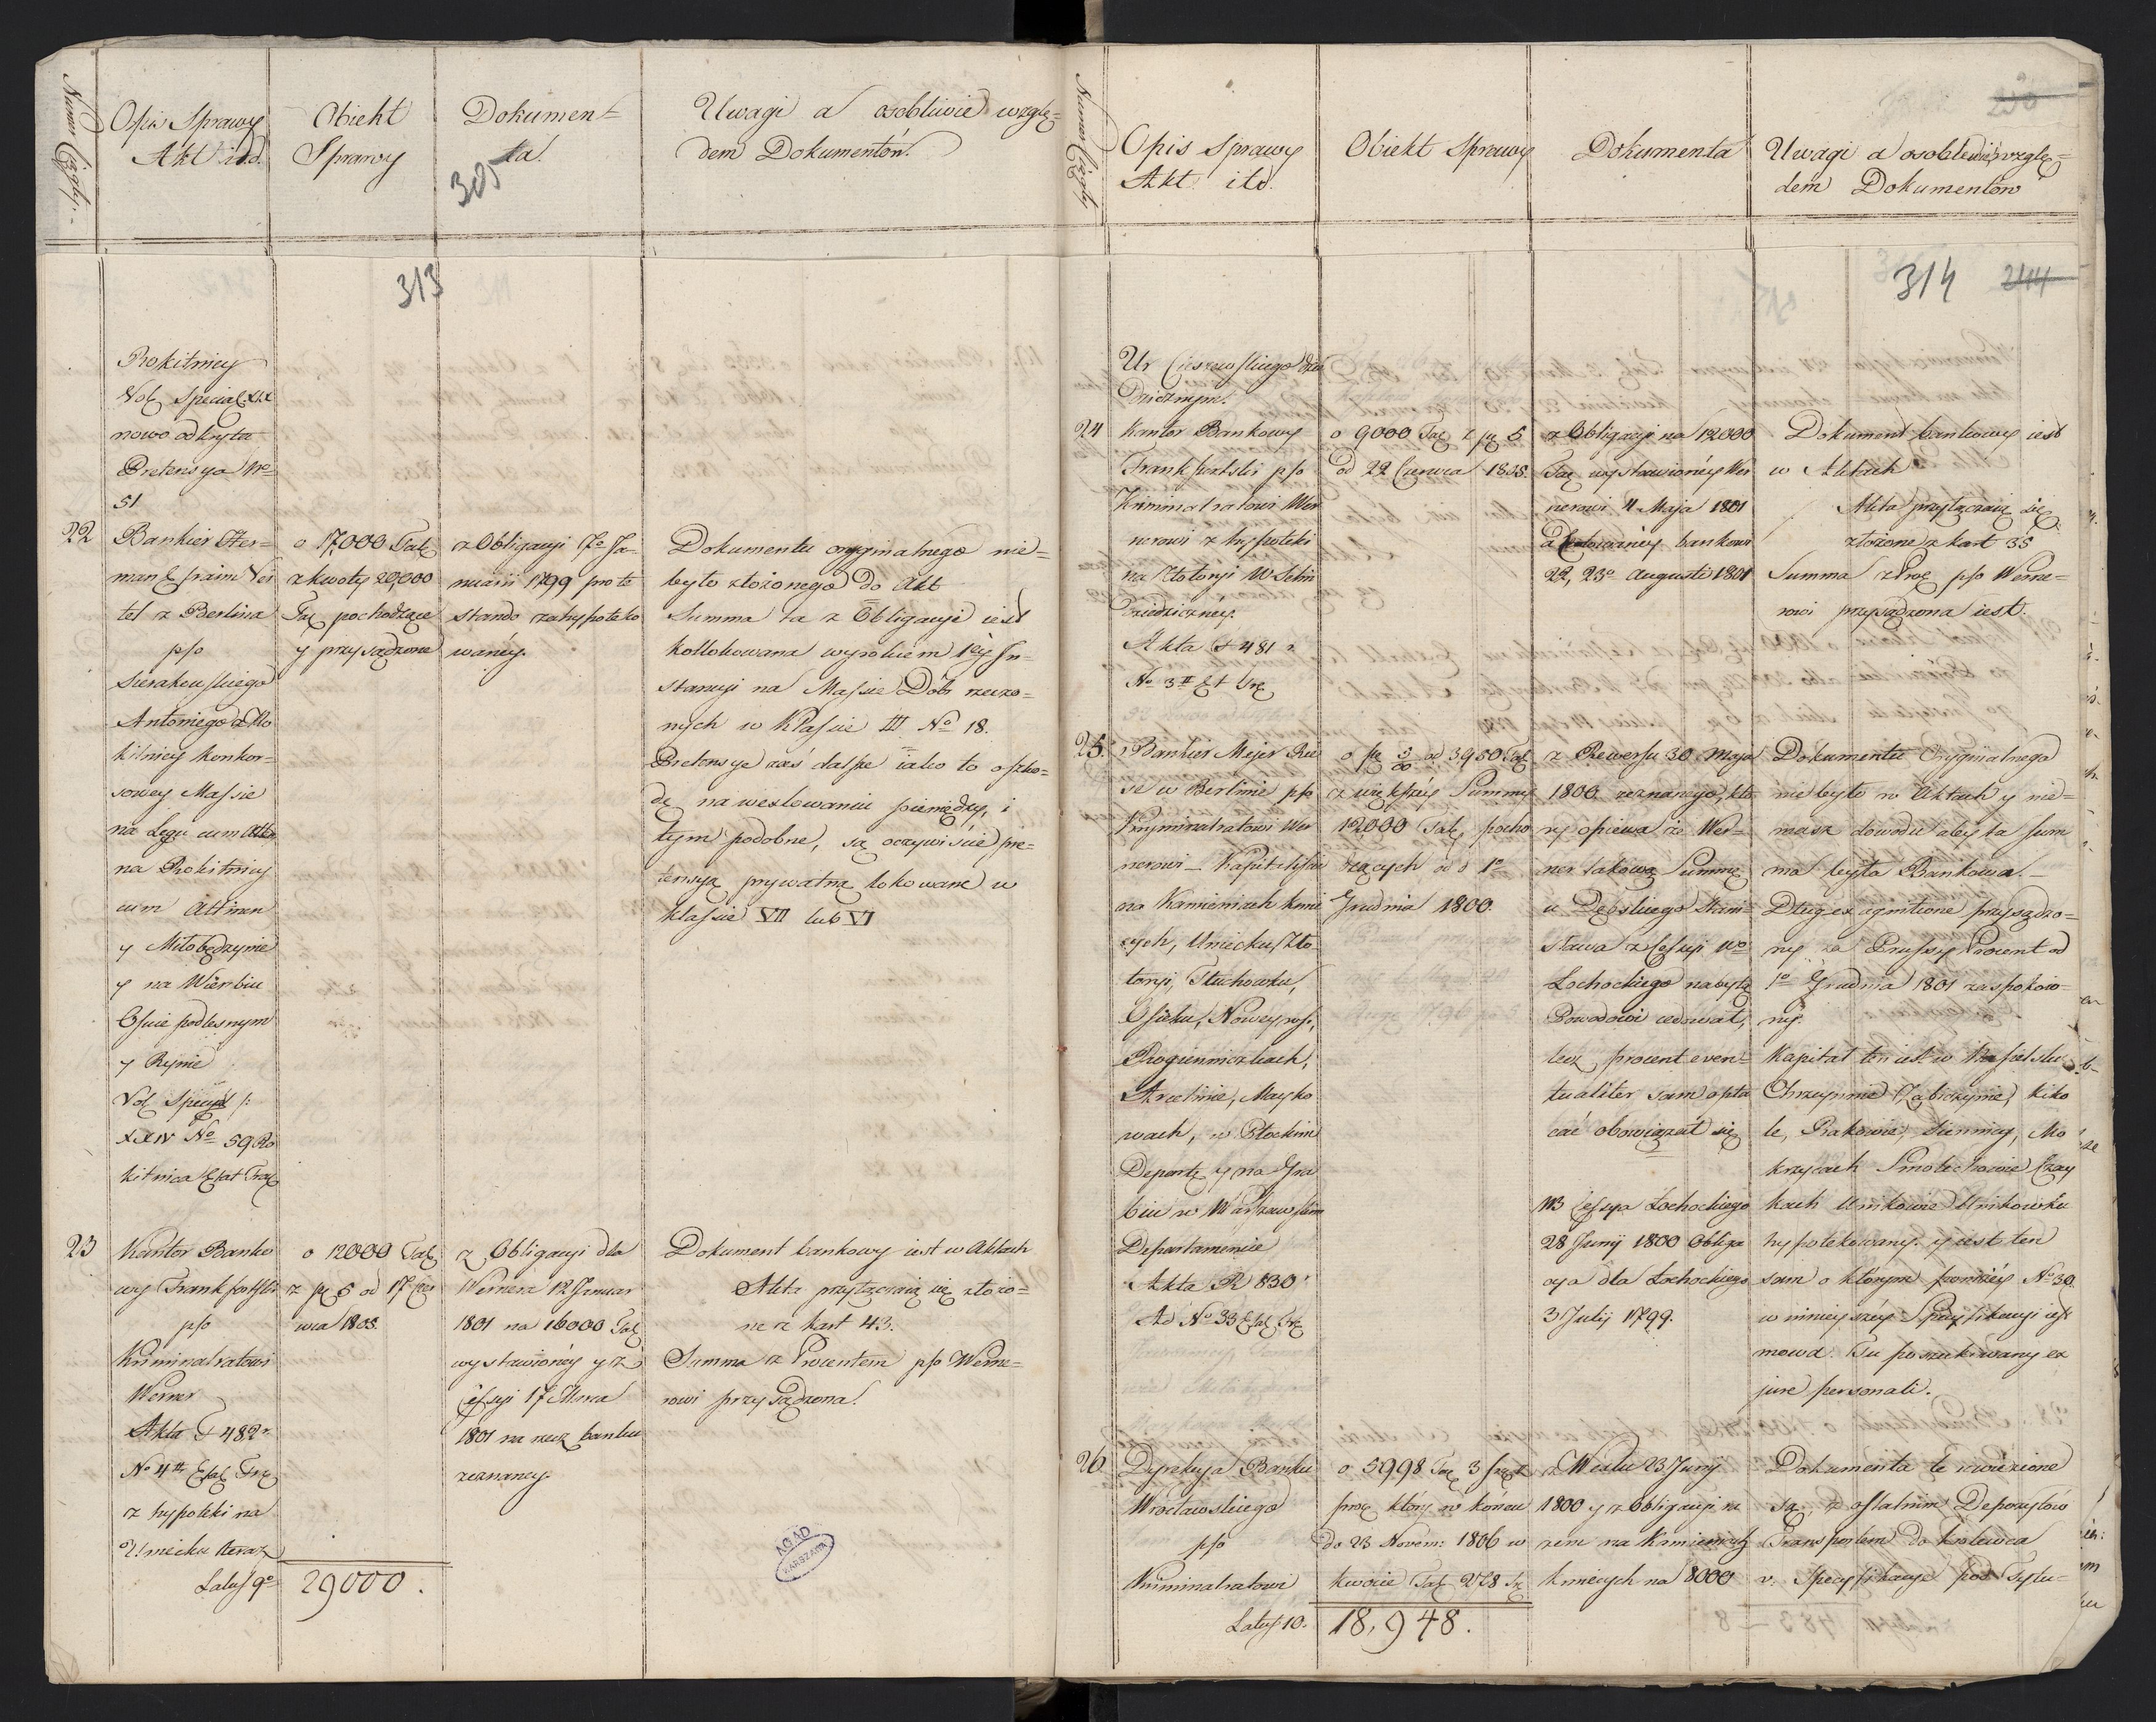 Numer Ciągły.
Opis Sprawy
Akt itd.
Obiekt
Sprawy
Dokumen=
ta.
305
Uwagi a osobliwie wzglę=
dem Dokumentów.
313
Rokitnicy
Vol. Special. XIX
nowo odkryta
Pretensya No
51
22
Bankier Her=
man Efraim Vei
tel z Berlina
p/o
Sierakowskiego
Antoniego z Ro
kitnicy konkur=
sowey Massie
na Łęgu cum Attin
na Rokitnicy
cum Attinen
y Miłobędzynie
y na Wierbiu
Ośnie podlesnym
y Rynie
Vol. Special
XXIV No 59 Ro
kitnica
o 17,000 Tal.
z kwoty 20,000
Tal. pochodzące
y przysądzone
z Obligacyi 7o Ja=
nuarii 1799 prote
stando zahypoteko
waney.
Dokumentu oryginalnego nie=
było złożonego do Akt
Summa ta z Obligacyi iest
kollokowana wyrokiem 1ey In=
stancyi na Massie Dóbr rzeczo=
nych w Klassie III No 18.
Pretensye zaś dalsze iako to o szko=
dę na wexlowaniu pieniędzy, i
tym podobne, są oczywiście pre=
tensyą prywatną lokowane w
klassie VII lub VI
23
Kantor Banko
wy Frankfortski
p/o
Kriminalratowi
Werner
Akta F 482
No 4
z hypoteki na
Umieku
Latus 9o
o 12000 Tal.
z pr. 5 od 17 Czer
wca 1805.
29000.
z Obligacyi dla
Wernera 12 Januar
1801 na 16000 Tal.
wystawioney y z
Cessyi 17 Marca
1801 na rzecz banku
zeznaney.
Dokument bankowy iest w Aktach
Akta przyłączaią się złożo=
ne z kart 43.
Summa z Procentem p/o Werne=
rowi przysądzona.
AGAD
WARSZAWA
Numer Ciągły
Opis Sprawy
Akt itd.
Obiekt Sprawy
Dokumenta
Uwagi a osobliwie wzglę=
dem Dokumentów
314
Ur Cieszewskiego dzie
dzicznym.
24
Kantor Bankowy
Frankfortski p/o
Kriminalratowi Wer
nerowi z hypoteki
na Złotoryi W Selin
dziedziczney.
Akta F 481
No 3
o 9000 Tal. z pr. 5
od 22 Czerwca 1805.
z Obligacyi na 12000
Tal. wystawioney Wer
nerowi 4 Maja 1801
a cedowaney bankowi
22, 23o Augusti 1801
Dokument bankowy iest
w Aktach
Akta przyłączaią się
złożone z kart 35
Summa z Proc. p/o Werne=
rowi przysądzona iest.
25.
Bankier Mejer Rie
se w Berlinie p/o
Kryminalratowi Wer
nerowi – Kapitalista
na Kamieniach kmie
cych, Umiecku, Zło
toryi, Tłuchowku,
Osieku, Noweywsi,
Rogienniczkach,
Skrzelinie, Mayko
wach, w Płockim
Departę y na Gra
biu w Warszawskim
Departamencie
Akta R 830
Ad No 33
o pr. 5/00 od 3950 Tal.
z większey Summy
12000 Tal. pocho
dzących od 1o
Grudnia 1800.
z Rewersu 30 Maja
1800 zeznanego, któ
ry opiewa że Wer=
ner takową Summę
u Dębskiego Stani=
sława z Cessyi Wo
Łochockiego nabytą
Powodowi cedował,
lecz procent even=
tualiter sam opła
cać obowiązał się
NB Cessya Łochockiego
28 Junij 1800 Obliga
cya dla Łochockiego
3 Julij 1799.
Dokumentu Oryginalnego
nie było w Aktach y nie=
masz dowodu aby ta sum
ma była Bankowa.–
Dług ex agnitione przysądzo=
ny za Prussy Procent od
1o Grudnia 1801 zaspokoio=
ny.
Kapitał ten iest w
Chrzypnie Zabiczynie, Kiko
le, Rakowie, Siennicy, Mo
krzycach Smolechowie Czay
kach Unikowie Unikowku
hypotekowany y iest ten
sam o którym poniżey No 30
w ninieyszey Specyfikacyi iest
mowa. Tu poszukiwany ex
jure personali.
26
Dyrekcya Banku
Wrocławskiego
p/o
Kriminalratowi
Latus 10.
o 5998 Tal. 3
proc. który w końcu
do 23 Novem: 1806 w
kwocie Tal. 278
18,948.
z Wexlu 23 Junij
1800 y z Obligacyi
na Kamieniach
kmiecych na 8000
Dokumenta te uwiezione
są, z ostatnim Depozytów
Transportem do Krolewca
v. Specyfikacye pod Tytu=